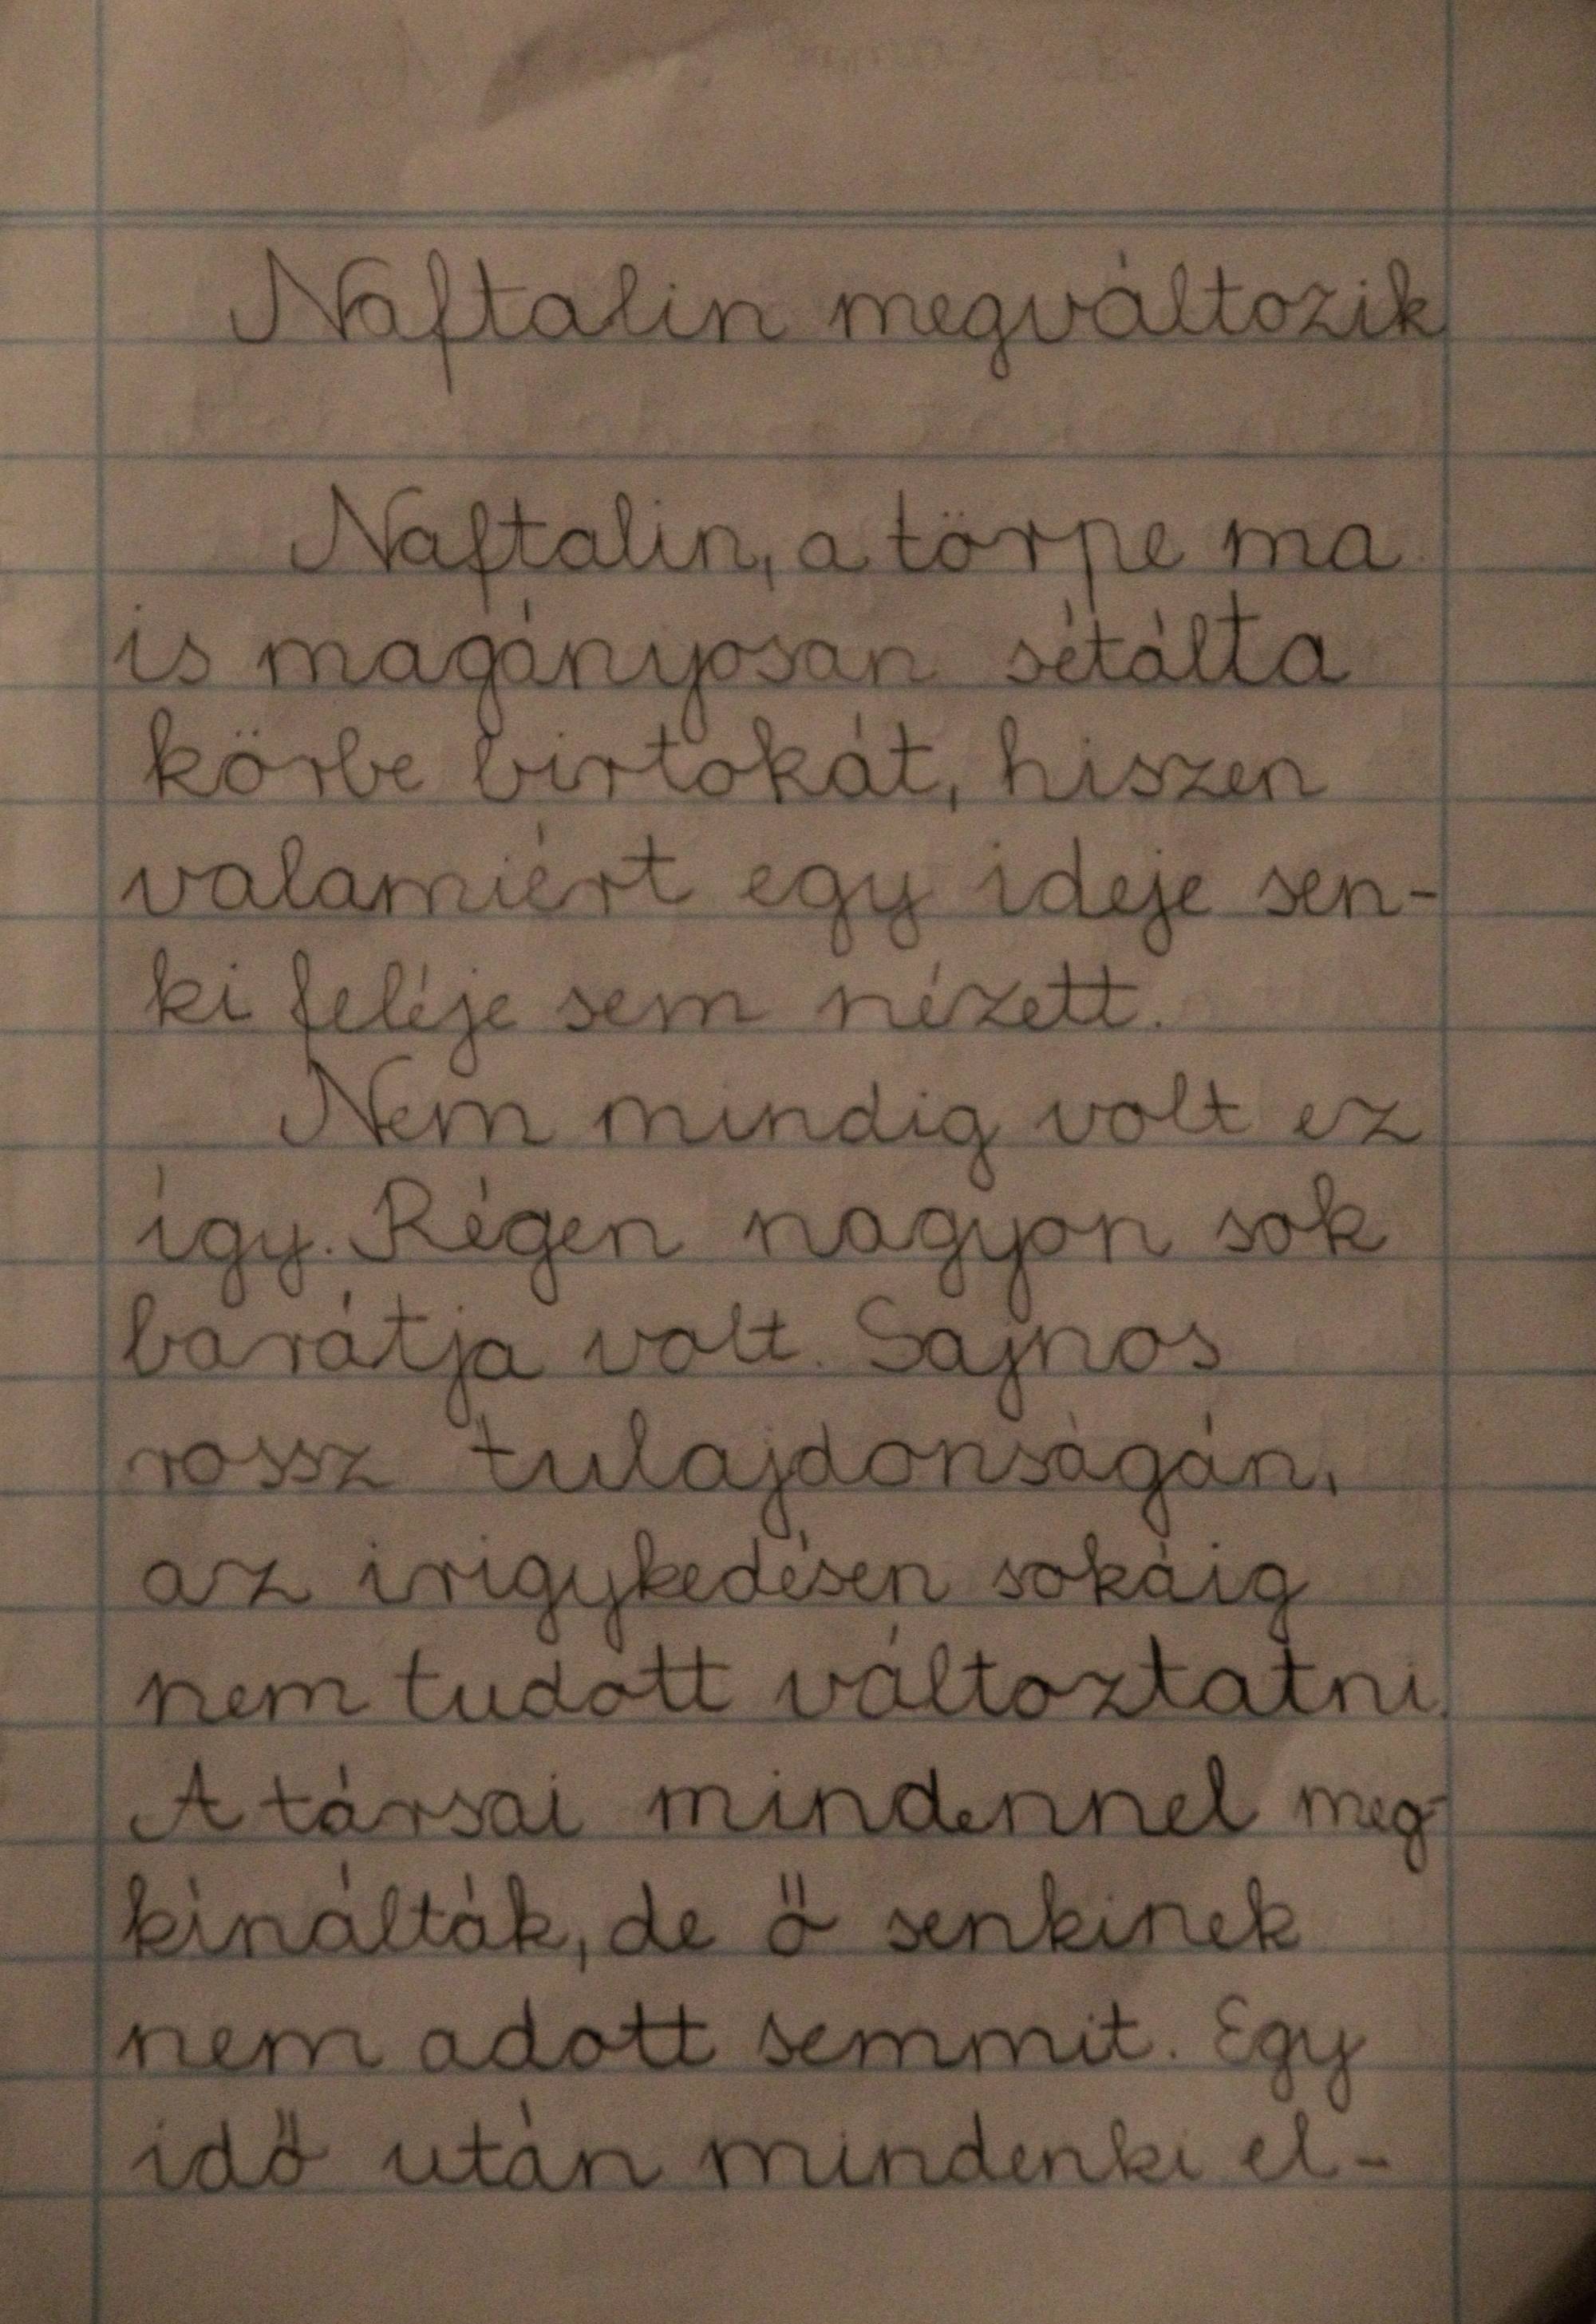 Naftalin megváltozik
Naftalin, a törpe ma
is magányosan sétálta
körbe birtokát, hiszen
valamiért egy ideje sen-
ki feléje sem nézett.
Nem mindig volt ez
így. Régen nagyon sok
barátja volt. Sajnos
rossz tulajdonságán,
az irigykedésen sokáig
nem tudott változtatni.
A társai mindennel meg-
kínálták, de ő senkinek
nem adott semmit. Egy
idő után mindenki el-